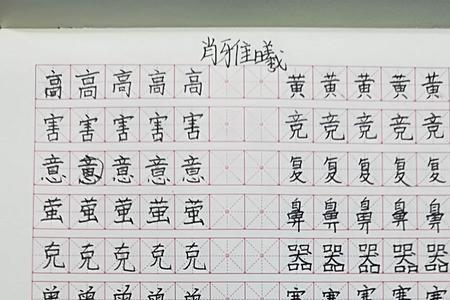 肖雅曦
高高高高高 黄黄黄黄黄
害害害害害 竞竞竞竞竞
意意意意意 复复复复复
萤萤萤萤萤 鼻鼻鼻鼻鼻
克克克克克 器器器器器
曾曾曾曾曾 寒寒寒寒寒